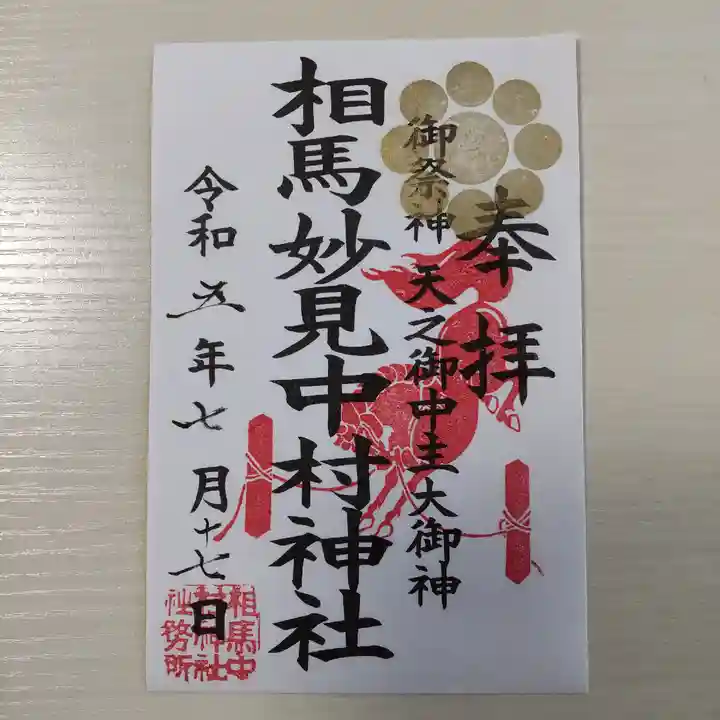 奉拝
御祭神 天之御中主大御神
相馬妙見中村神社
令和五年七月十七日
相馬中
村神社
社務所